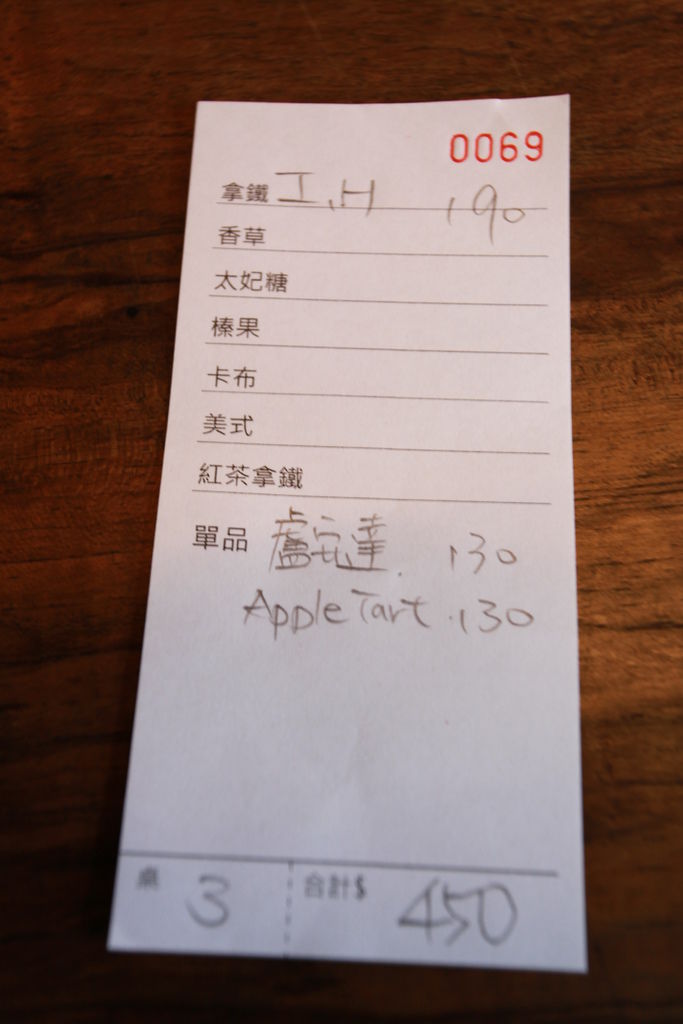 0069
拿鐵 I, H 190
香草
太妃糖
榛果
卡布
美式
紅茶拿鐵
單品 盧安達. 130
Apple Tart .130
桌 3 合計$ 450